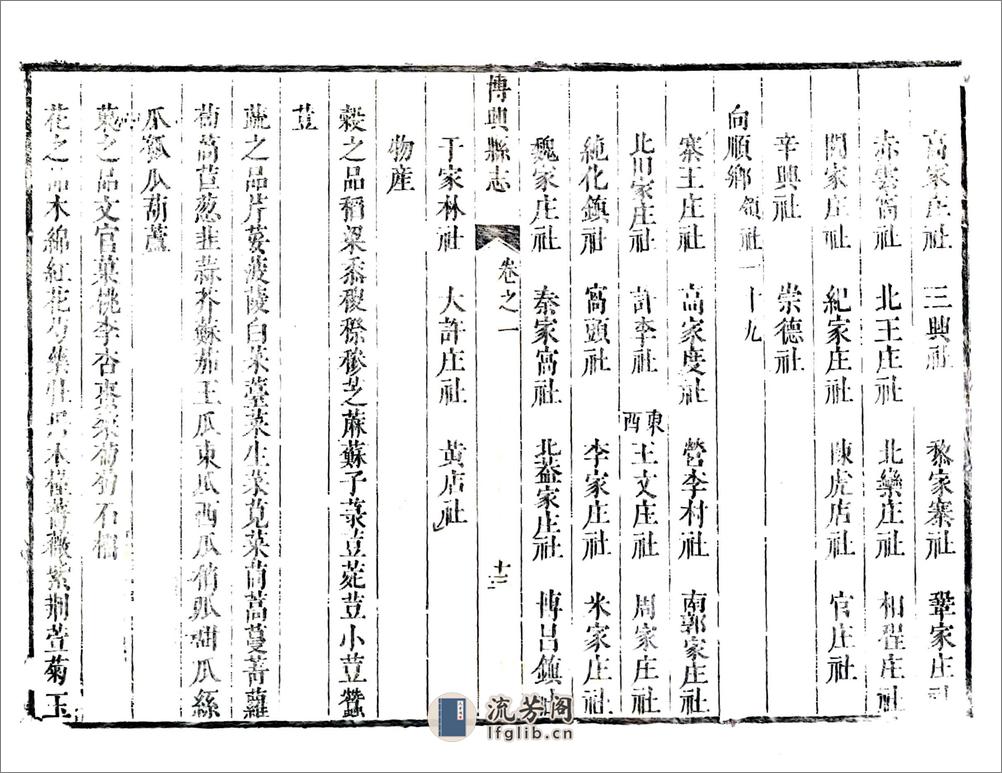 高家庄社 三興社 黎家寨社 鞏家庄社
赤雲窩社 北王庄社 北欒庄社 相程庄社
閆家庄社 紀家庄社 陳虎店社 官庄社
辛興社 崇德社
向順鄉領社一十九
寨王庄社 高家度社 營李村社 南郭家庄社
北旧家庄社 許李社 東西王文庄社 周家庄社
純化鎮社 窩頭社 李家庄社 米家庄社
魏家庄社 秦家窩社 北蓋家庄社 博呂鎮社
博興縣志 卷之一 十三
于家林社 大許庄社 黃店社
物産
穀之品稻粱黍稷穄穇芝蔴蘇子菉荳菀荳小荳蠶
荳
蔬之品芹荽菠薐白菜薹菜生菜莧菜茼蒿蔓菁蘿
蔔萵苣葱韭蒜芥蘇茄王瓜東瓜西瓜稍瓜甜瓜絲
瓜瓠瓜葫蘆
菓之品文官菓桃李杏棗梨葡萄石榴
花之品木綿紅花芍藥牡丹木槿薔薇紫荆萱菊玉
流芳阁
lfglib.cn